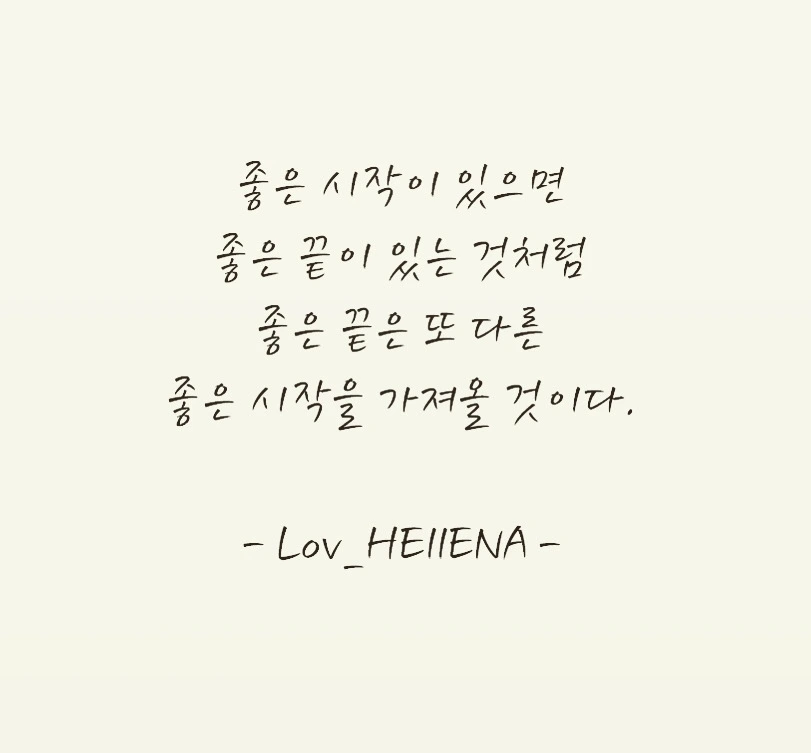 좋은 시작이 있으면
좋은 끝이 있는 것처럼
좋은 끝은 또 다른
좋은 시작을 가져올 것이다.
- Lov_HEllENA -